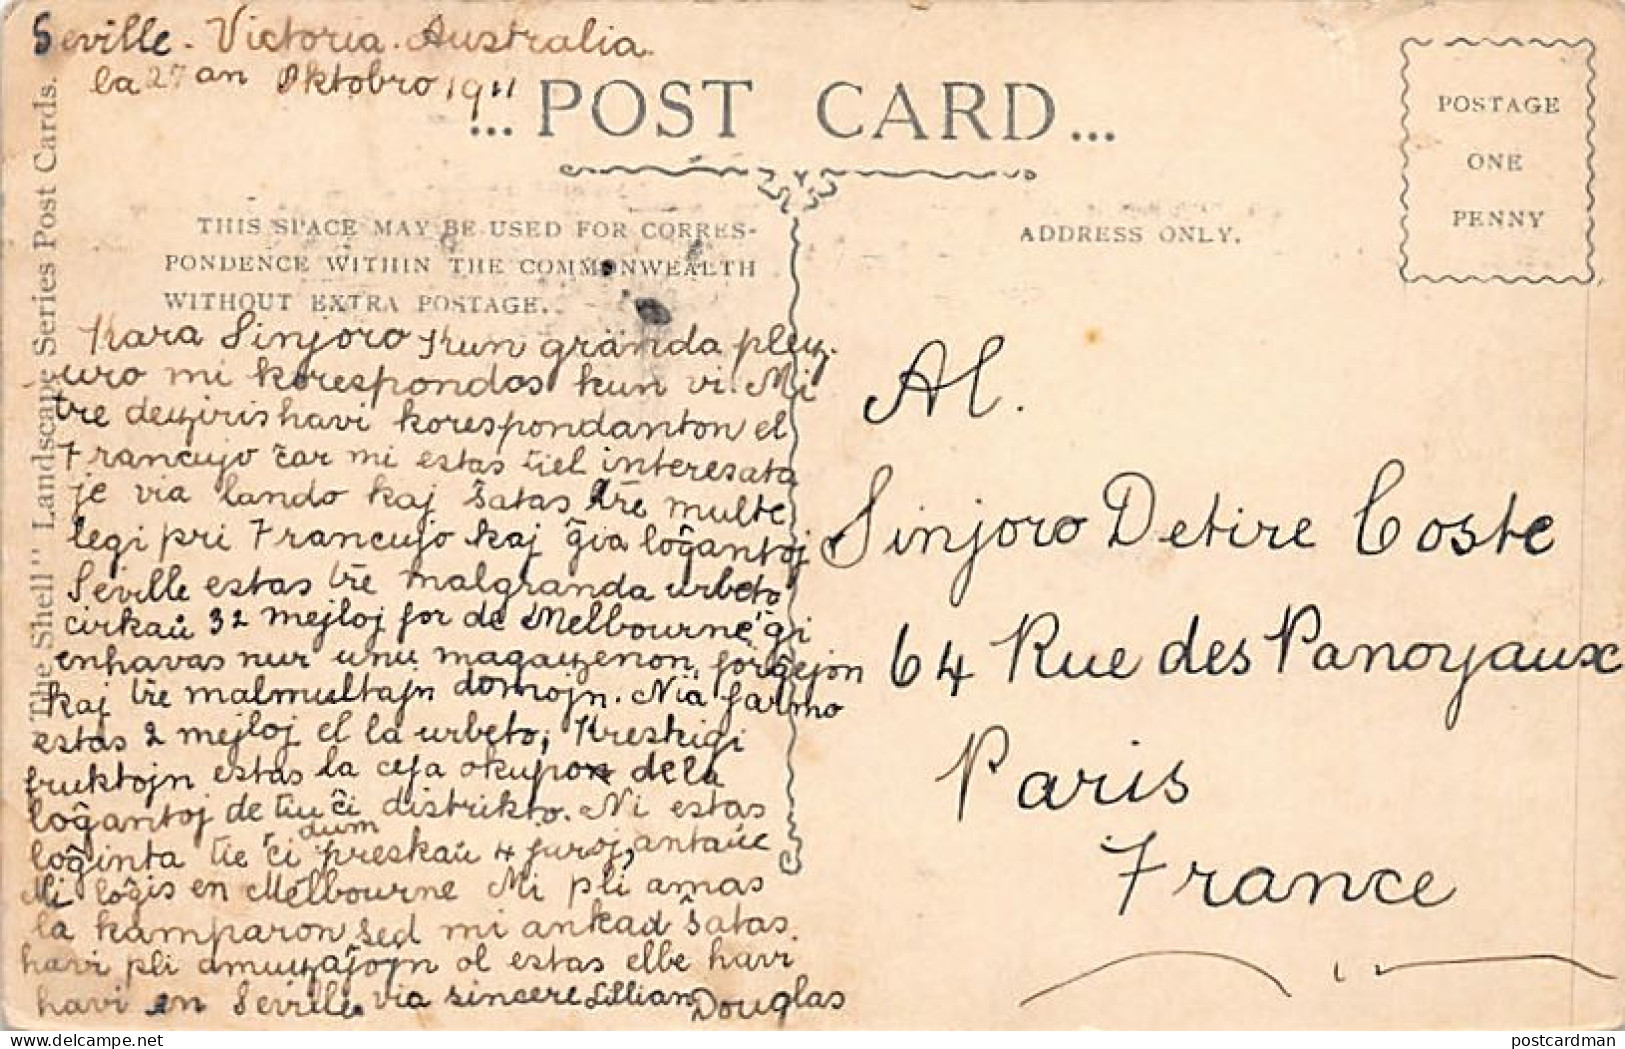 Seville. Victoria. Australia.
la 27an Oktobro 1911
... POST CARD ...
POSTAGE
ONE
PENNY
THIS SPACE MAY BE USED FOR CORRES-
PONDENCE WITHIN THE COMMONWEALTH
WITHOUT EXTRA POSTAGE.
ADDRESS ONLY.
"The Shell" Landscape Series Post Cards.
Kara Sinjoro Kun granda plez-
uro mi korespondos kun vi. Mi
tre deziris havi korespondanton el
Francujo ĉar mi estas tiel interesata
je via lando kaj ŝatas tre multe
legi pri Francujo kaj ĝia loĝantoj
Seville estas tre malgranda urbeto
cirkaŭ 32 mejloj for de Melbourne, ĝi
enhavas nur unu magazenon, forĝejon
kaj tre malmultajn domojn. Nia farmo
estas 2 mejloj el la urbeto, Kreskigi
fruktojn estas la ĉefa okupo de la
loĝantoj de tiu ĉi distrikto. Ni estas
loĝinta tie ĉi dum preskaŭ 4 juroj, antaŭe
Mi loĝis en Melbourne Mi pli amas
la kamparon sed mi ankaŭ ŝatas
havi pli amuzaĵojn ol estas elbe havi
havi en Seville. via sincere Lillian Douglas
Al.
Sinjoro Detire Coste
64 Rue des Panoyaux
Paris
France
postcardman